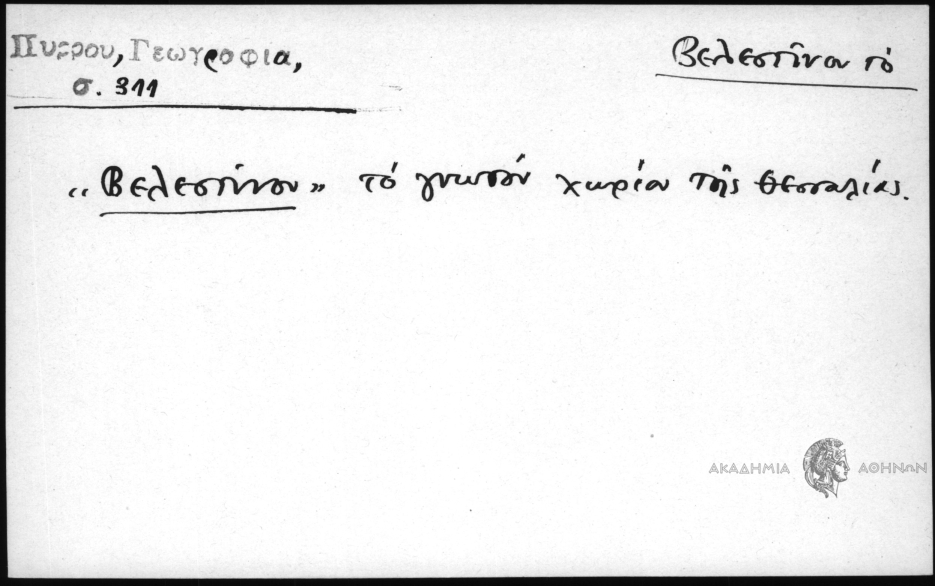 Πύρρου, Γεωγραφία,
σ. 311
Βελεστῖνον τό
„Βελεστῖνον” τό γνωστόν χωρίον τῆς Θεσσαλίας.
ΑΚΑΔΗΜΙΑ ΑΘΗΝΩΝ